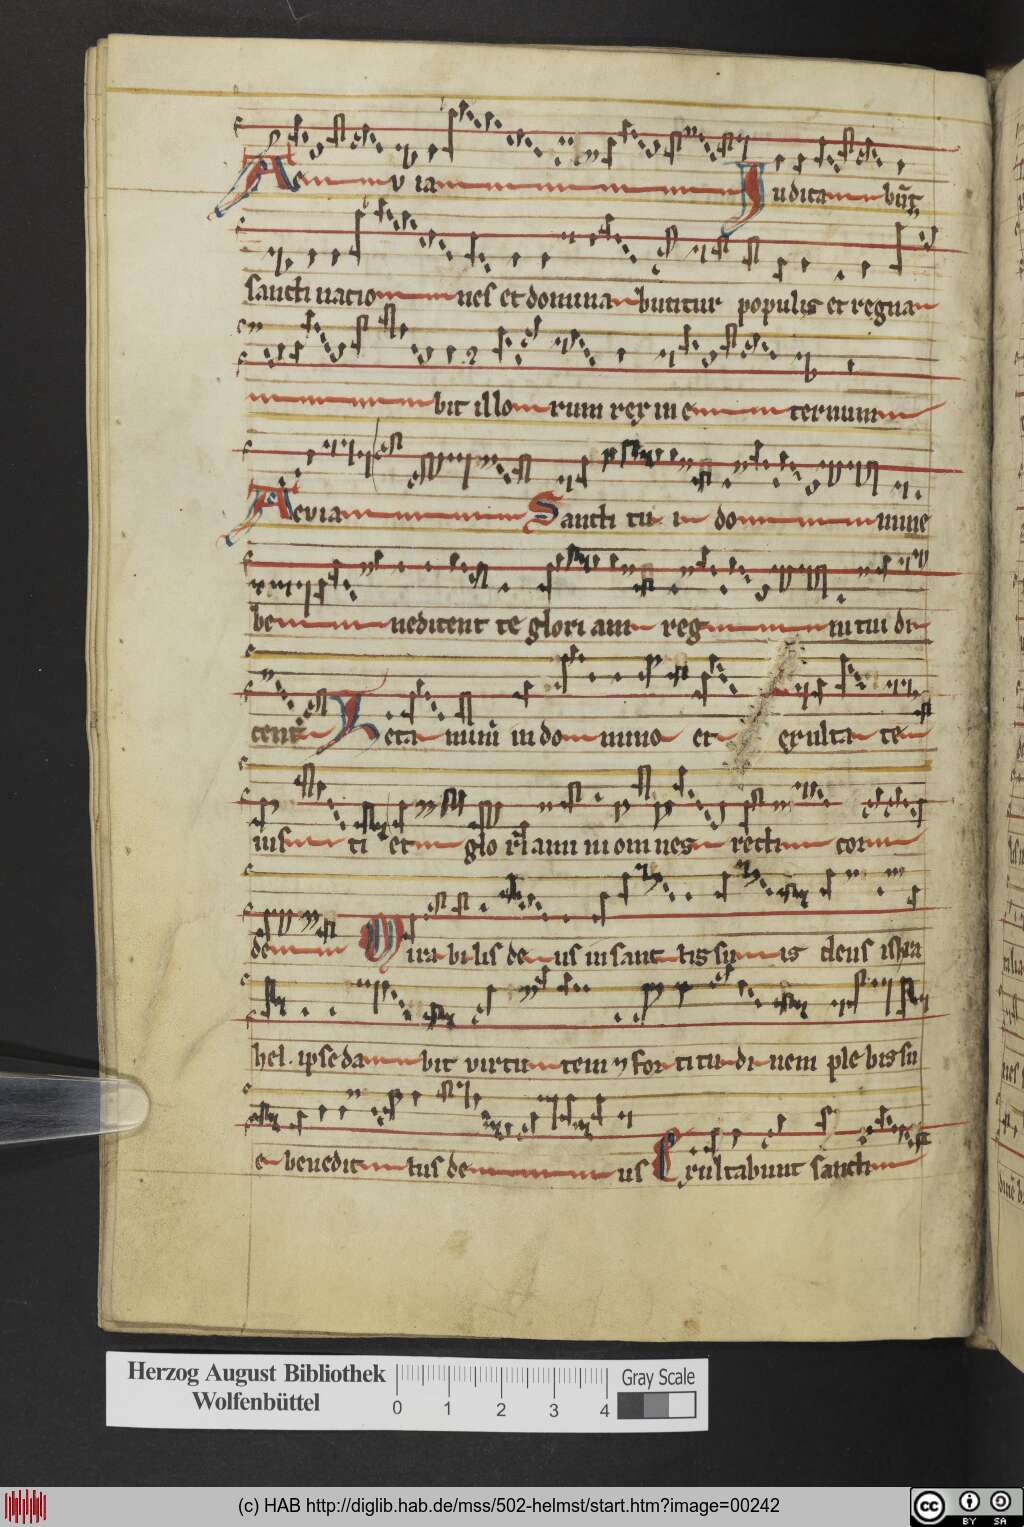 Aevia Iudicabūt
sancti nationes et dominabuntur populis et regna
bit illorum rex in eternum
Aevia Sancti tui domine
benedicent te gloriam regni tui di
cent Letamini in domino et exulta te
iusti et gloriamini omnes recti cor
de Mirabilis deus in sanctis suis deus isra
hel. ipse dabit virtutem ⁊ fortitudinem plebis su
e benedictus deus Exultabunt sancti
Herzog August Bibliothek
Wolfenbüttel
0 1 2 3 4
Gray Scale
(c) HAB http://diglib.hab.de/mss/502-helmst/start.htm?image=00242
cc BY SA